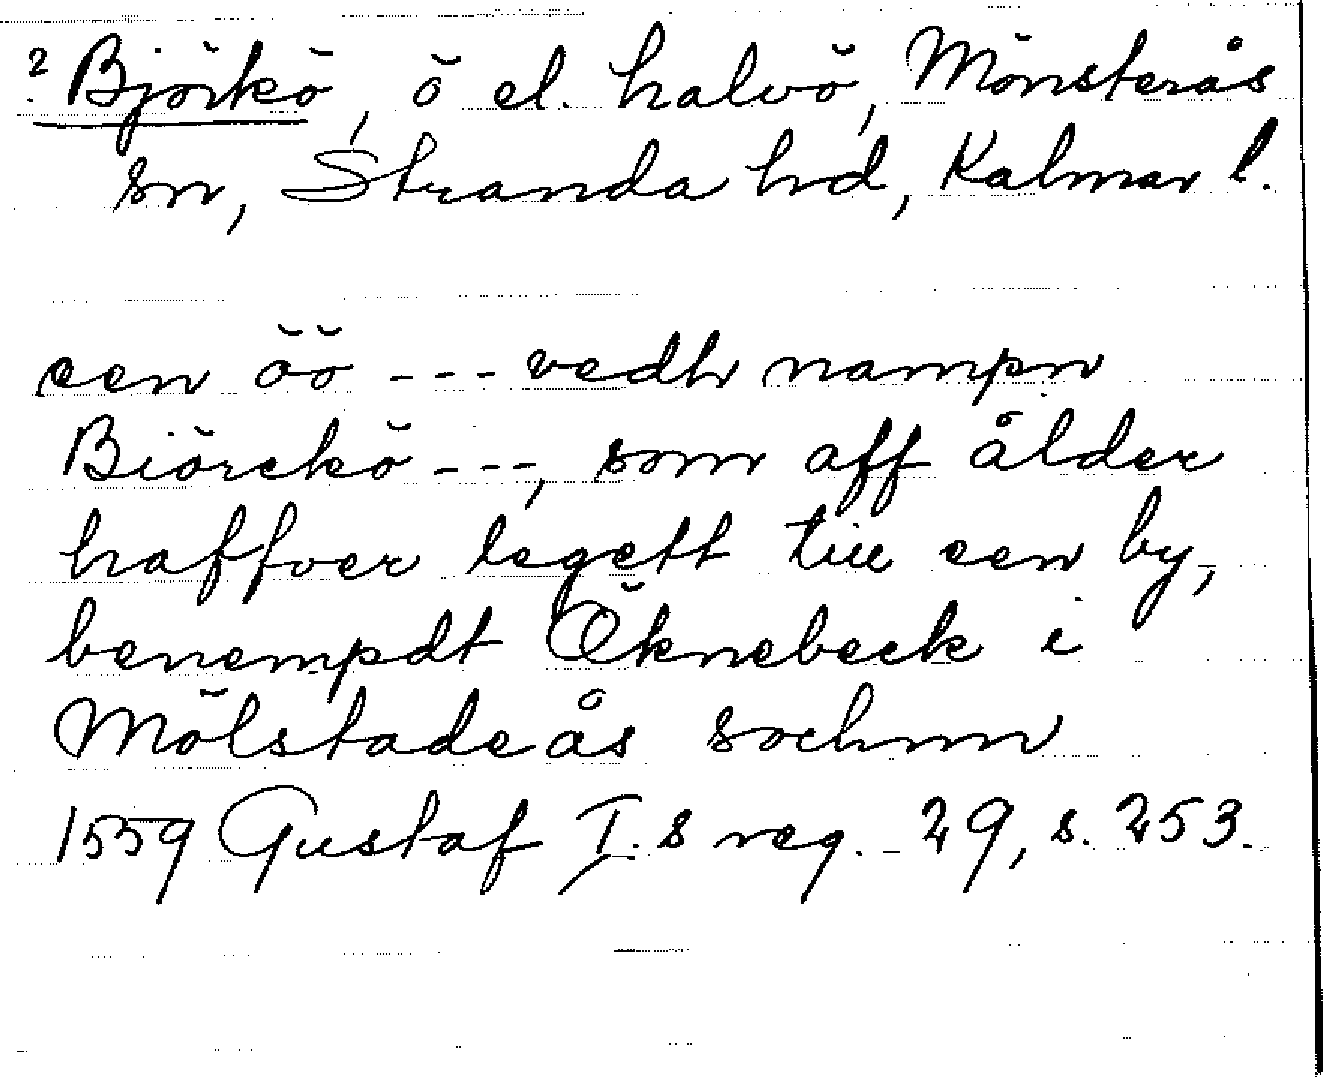 ? Björkö, ö el. halvö, Mönsterås
sn, Stranda hd, Kalmar l.
een öö --- vedh nampn
Biörckö ---, som aff ålder
haffver legett till een by,
benempdt Öknebeck i
Mölstadeås sochnn
1559 Gustaf I.s reg. 29, s. 253.